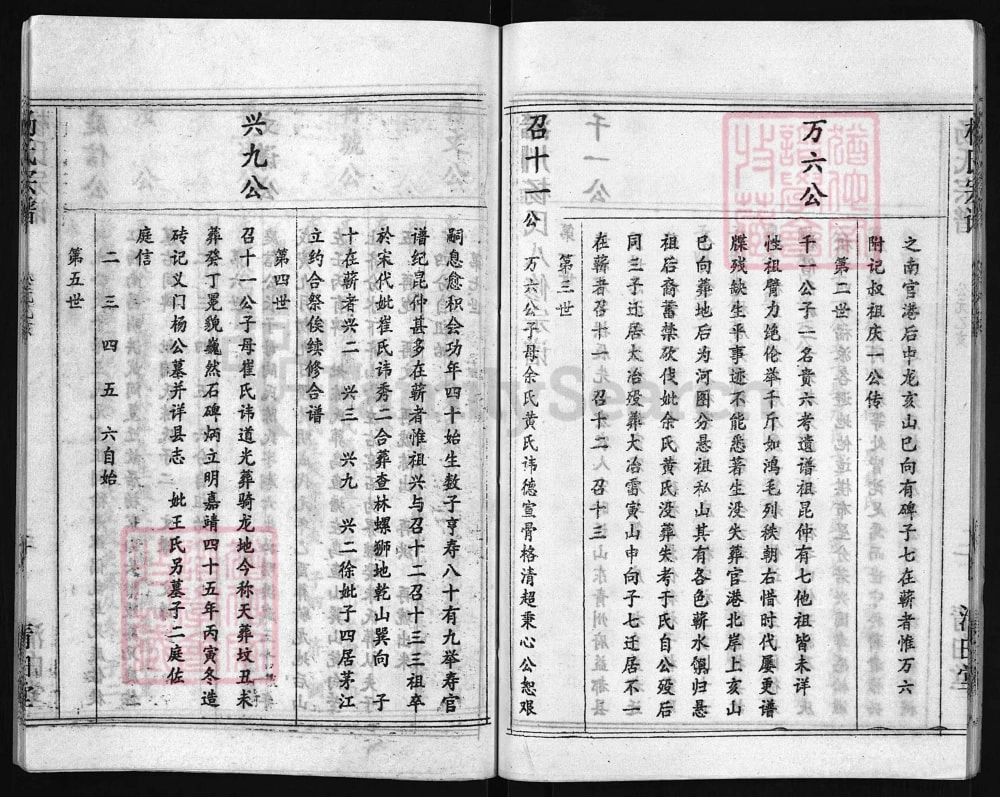 之南官港后中龙亥山巳向有碑子七在蕲者惟万六
附记叔祖庆一公传
第二世
万六公
千一公子一名贵六考遗谱祖昆仲有七他祖皆未详
性祖臂力绝伦举千斤如鸿毛列秩朝右惜时代屡更谱
牒残缺生平事迹不能悉著生没失葬官港北岸上亥山
巳向葬地后为河图分悬祖私山其有各色蕲水僎归悬
祖后裔蓄禁砍伐妣余氏黄氏没葬失考于氏自公殁后
同三子还居大冶殁葬大冶雷寅山申向子七迁居不一
在蕲者召十一 召十二 召十三
第三世
召十一公
万六公子母余氏黄氏讳德宣骨格清超秉心公恕艰
嗣息愈积会功年四十始生数子亨寿八十有九举寿官
谱纪昆仲甚多在蕲者惟祖兴与召十二召十三三祖卒
於宋代妣崔氏讳秀二合葬查林螺狮地乾山巽向 子
十在蕲者兴二 兴三 兴九 兴二徐妣子四居茅江
立约合祭俟续修合谱
第四世
兴九公
召十一公子母崔氏讳道光葬骑龙地今称天葬坟丑未
葬癸丁冕貌巍然石碑炳立明嘉靖四十五年丙寅冬造
砖记义门杨公墓并详县志 妣王氏另墓子二庭佐
庭信
二 三 四 五 六自始
第五世
杨氏宗谱
清白堂